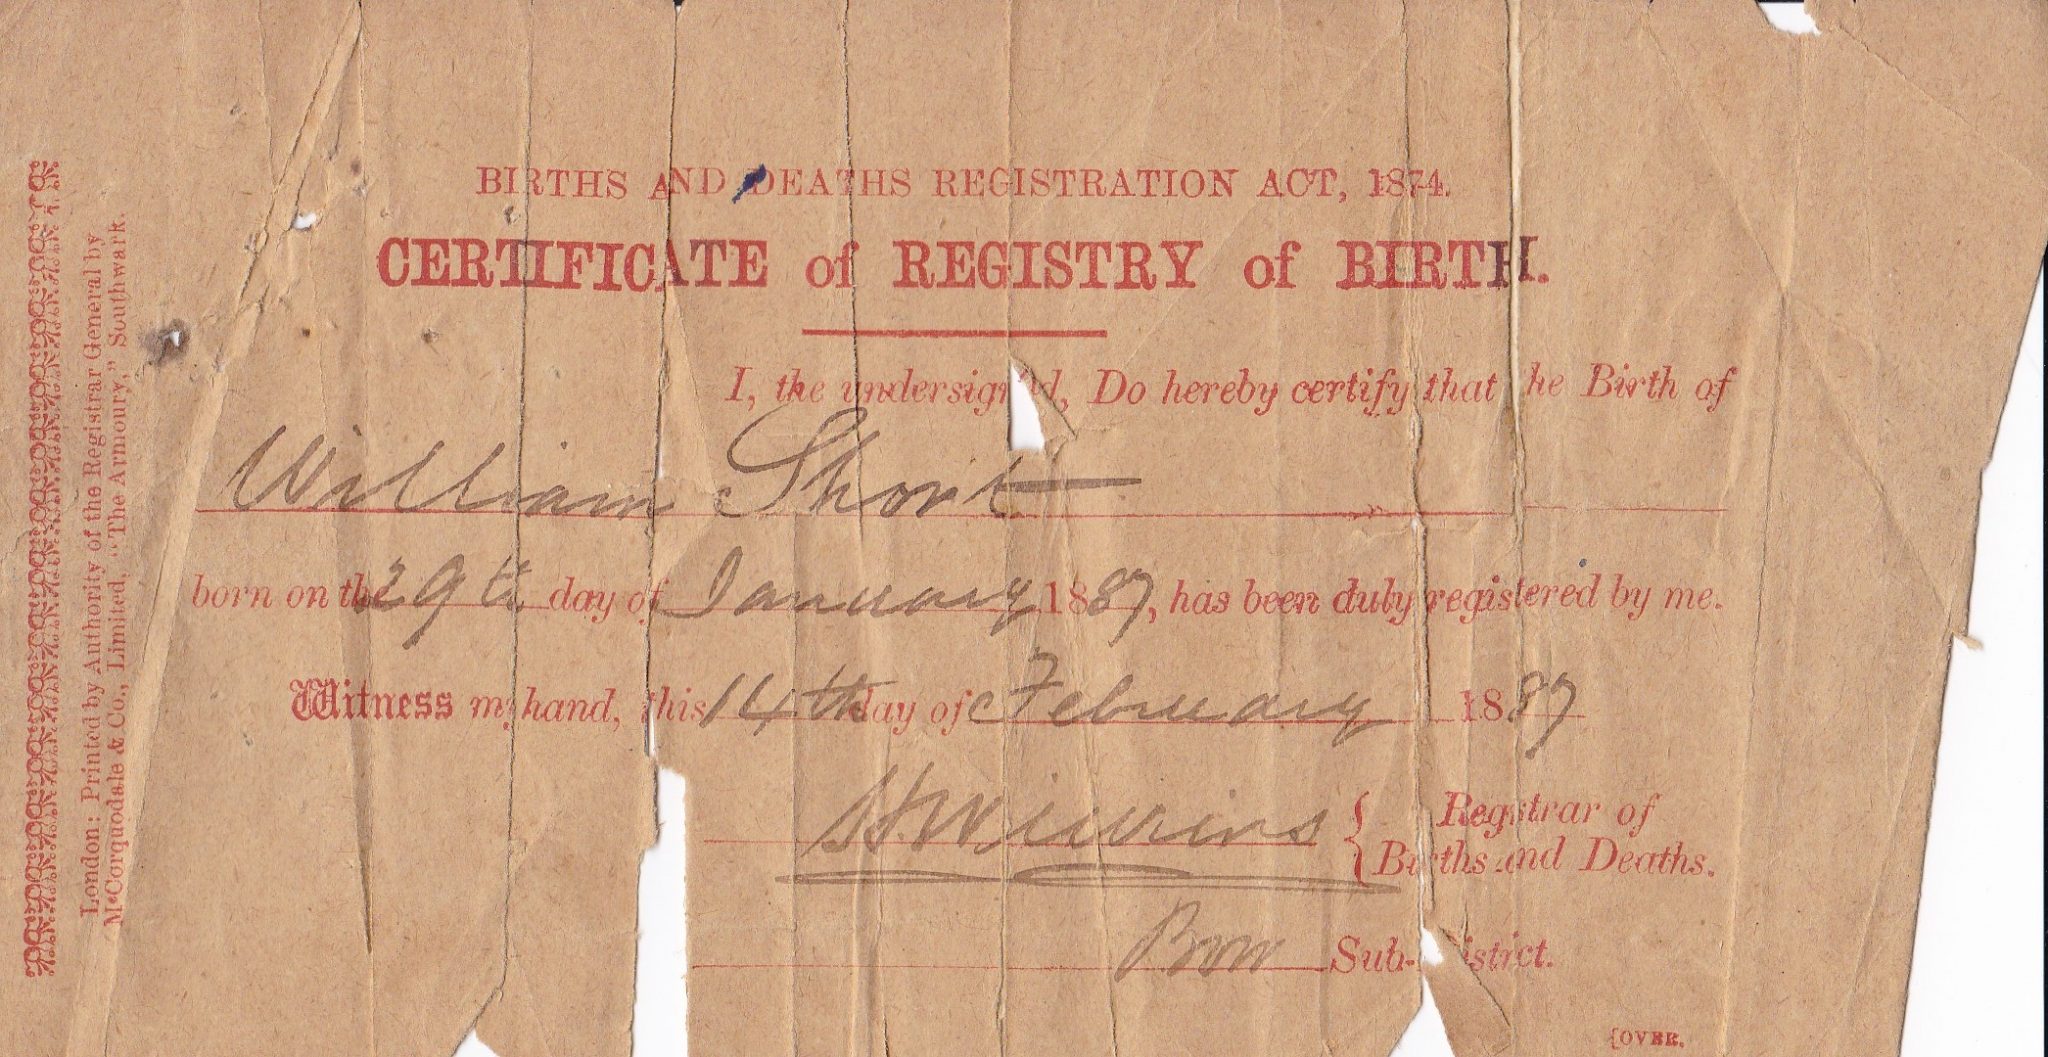 BIRTHS AND DEATHS REGISTRATION ACT, 1874.
CERTIFICATE of REGISTRY of BIRTH.
I, the undersign'd, Do hereby certify that he Birth of
William Short
born on the 29th day of January 1887, has been duly registered by me.
Witness my hand, this 14th day of February 1887
H. Wilkins { Registrar of
Births and Deaths.
Bow Sub-istrict.
[OVER.
London: Printed by Authority of the Registrar General by
McCorquodale & Co., Limited, "The Armoury," Southwark.